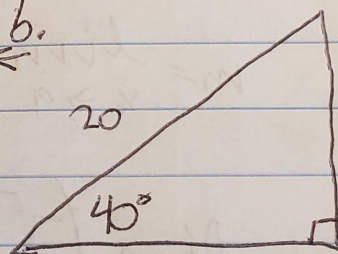 b.
20
40°